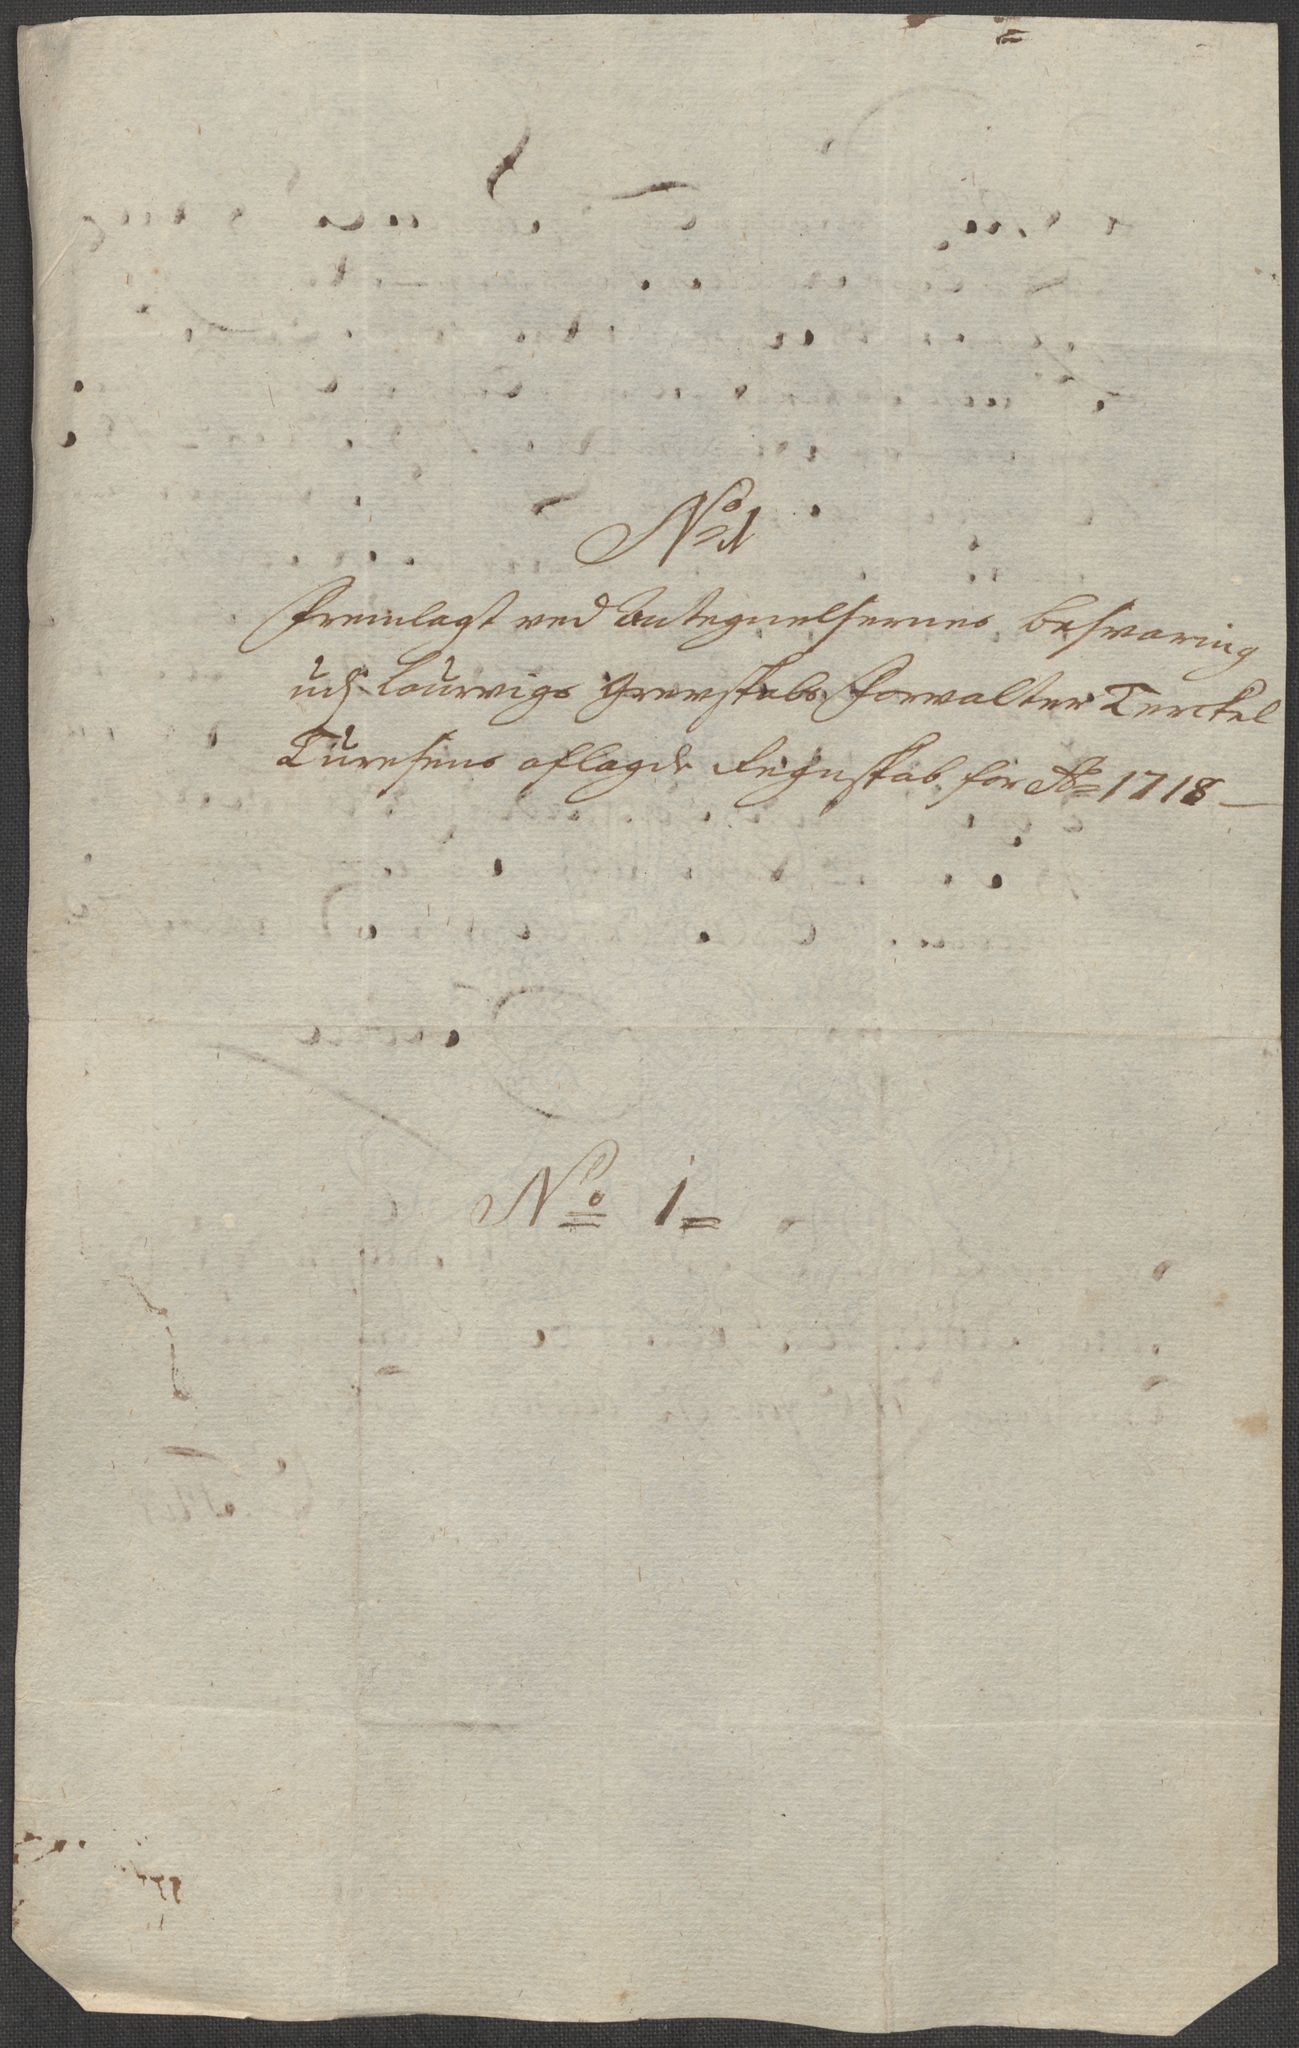 No 1
Fremlagt ved Antegnelsernes besvaring
udj Laurvigs Grevskabs Forvalter Terckel
Turesens aflagde Regnskab for Ao 1718
No 1